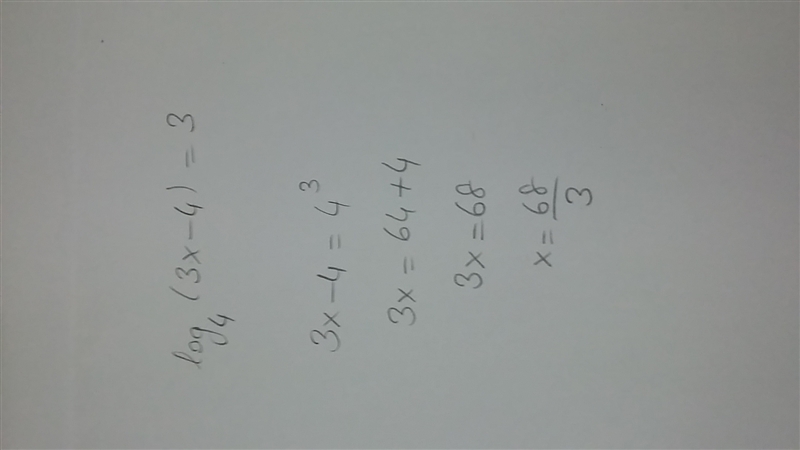 log₄(3x-4) = 3
3x-4 = 4³
3x = 64+4
3x = 68
x = 68/3